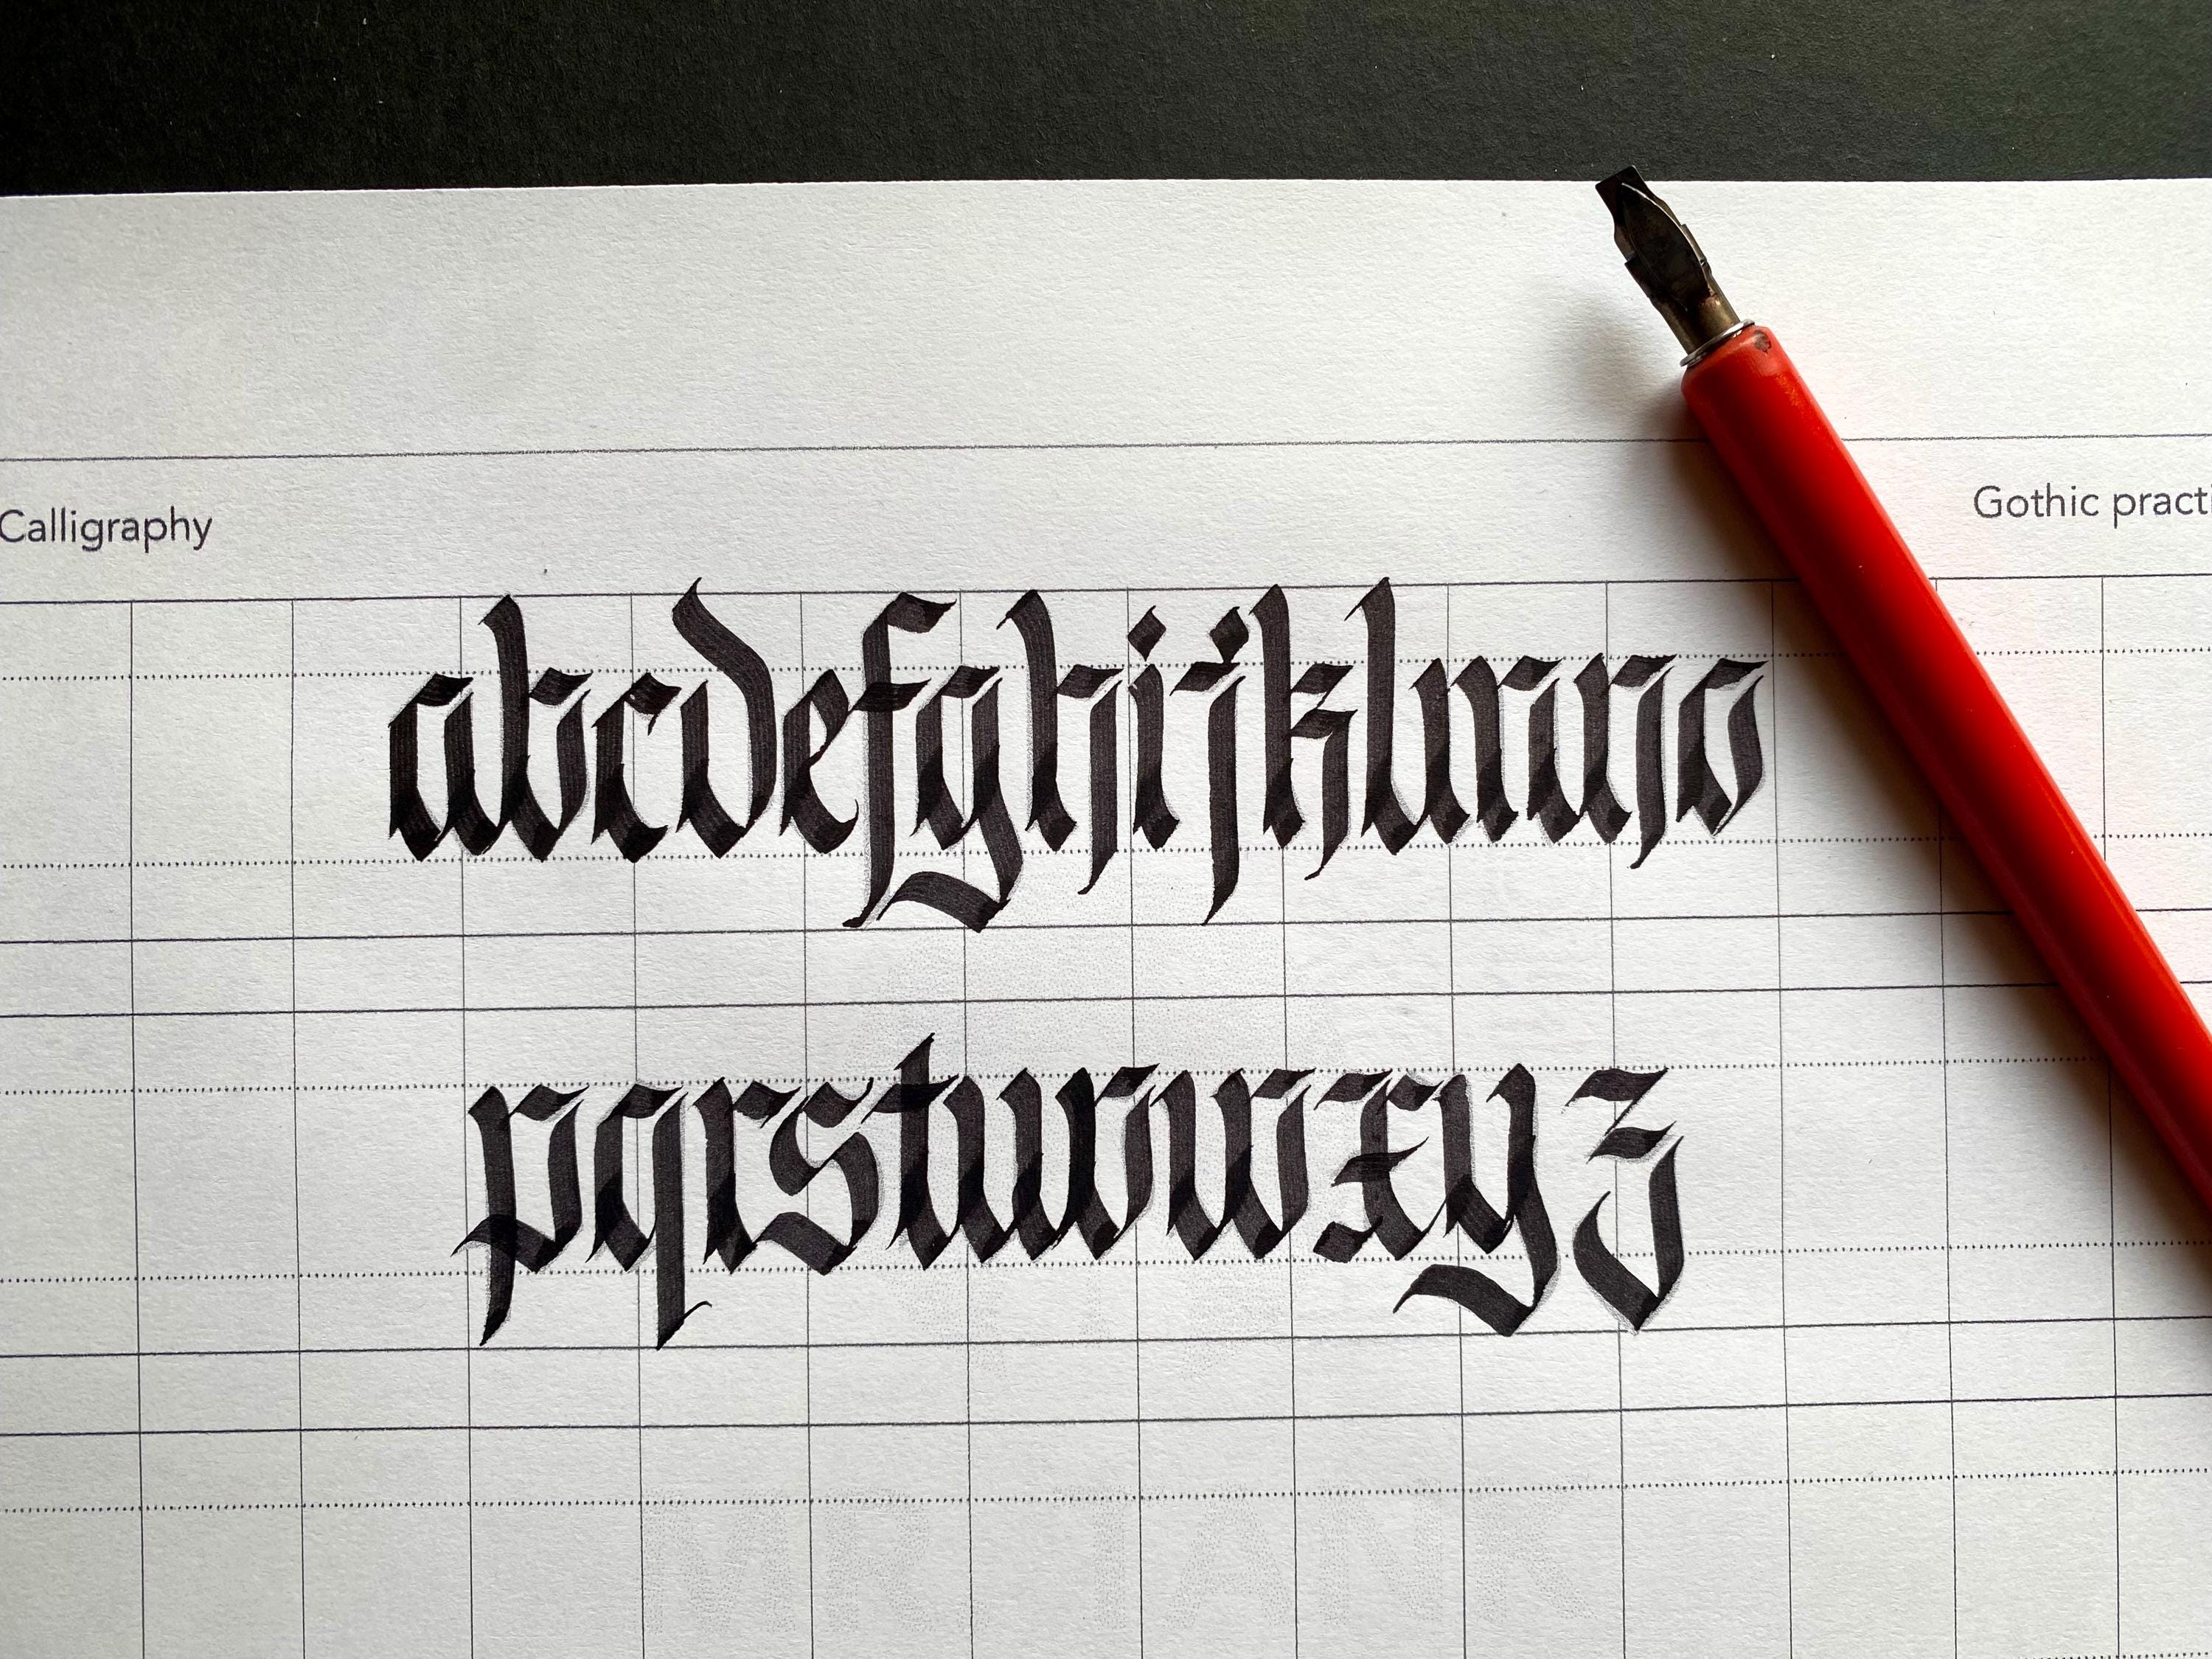 Calligraphy Gothic practi
abcdefghijklmno
pqrstuvwxyz